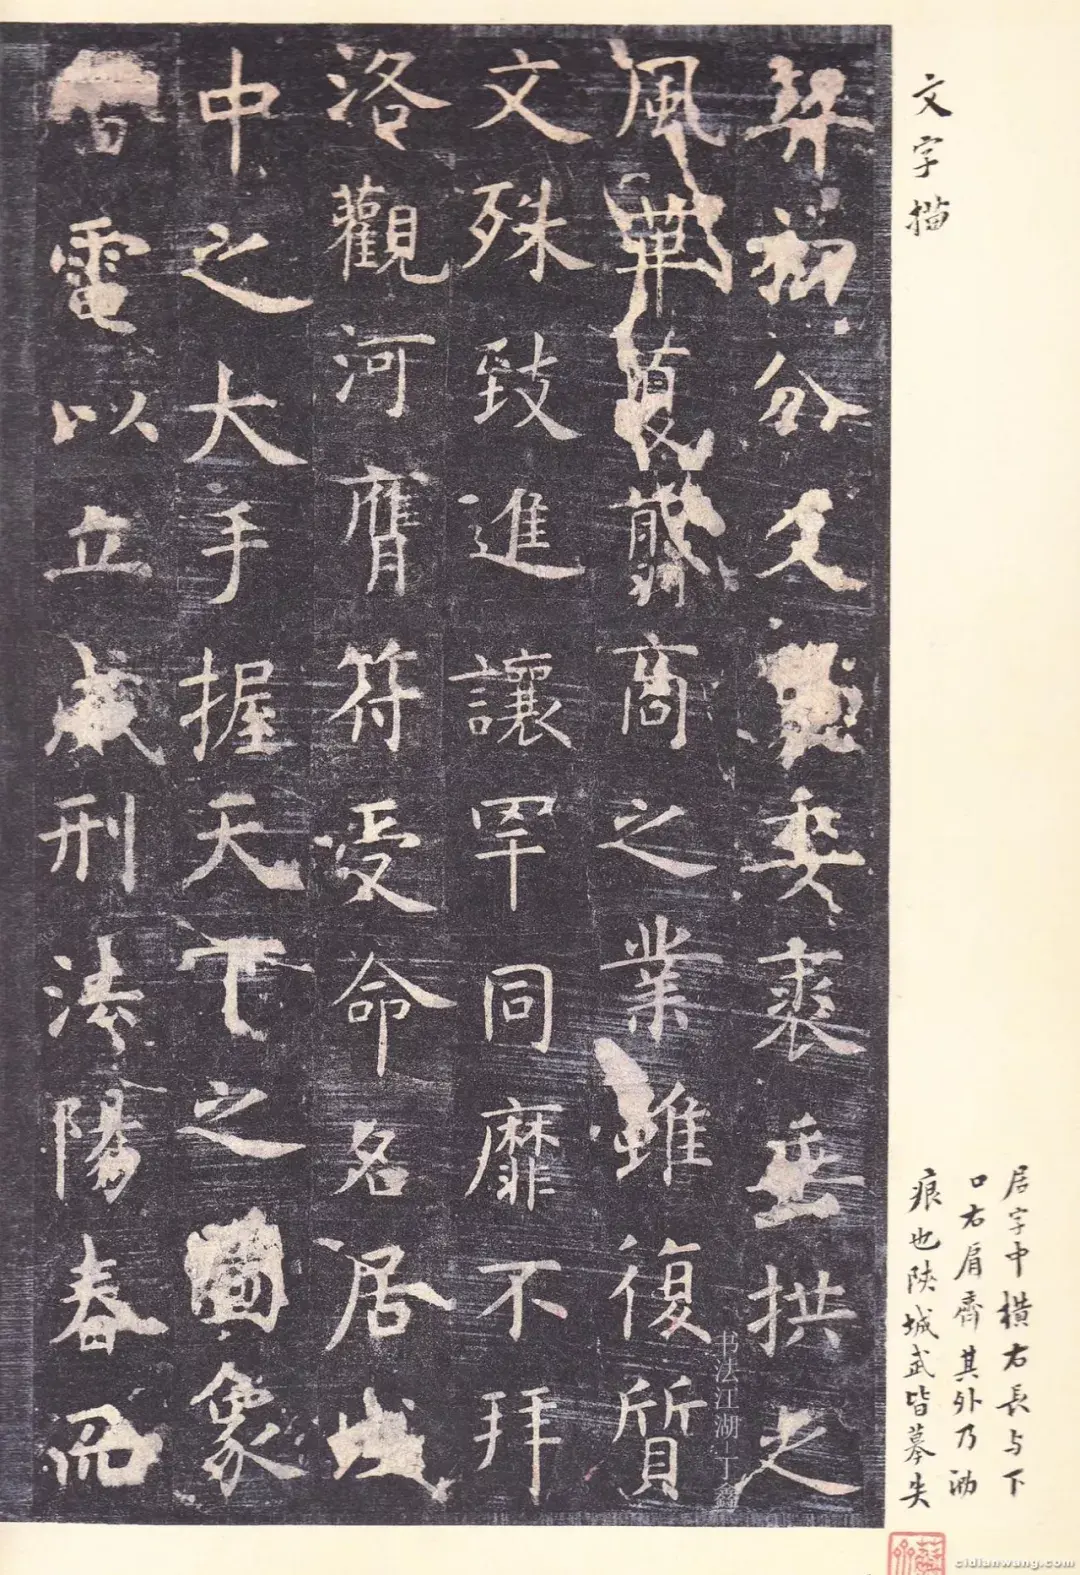 文字描
契初分爻委裘垂拱之
風革夏翦商之業雖復質
文殊致進讓罕同靡不拜
洛觀河膺符受命名居域
中之大手握天下之圖象
雷電以立威刑法陽春而
居字中橫右長与下
口右肩齊其外乃泐
痕也陝城武皆摹失
书法江湖丁鑫
cidianwang.com